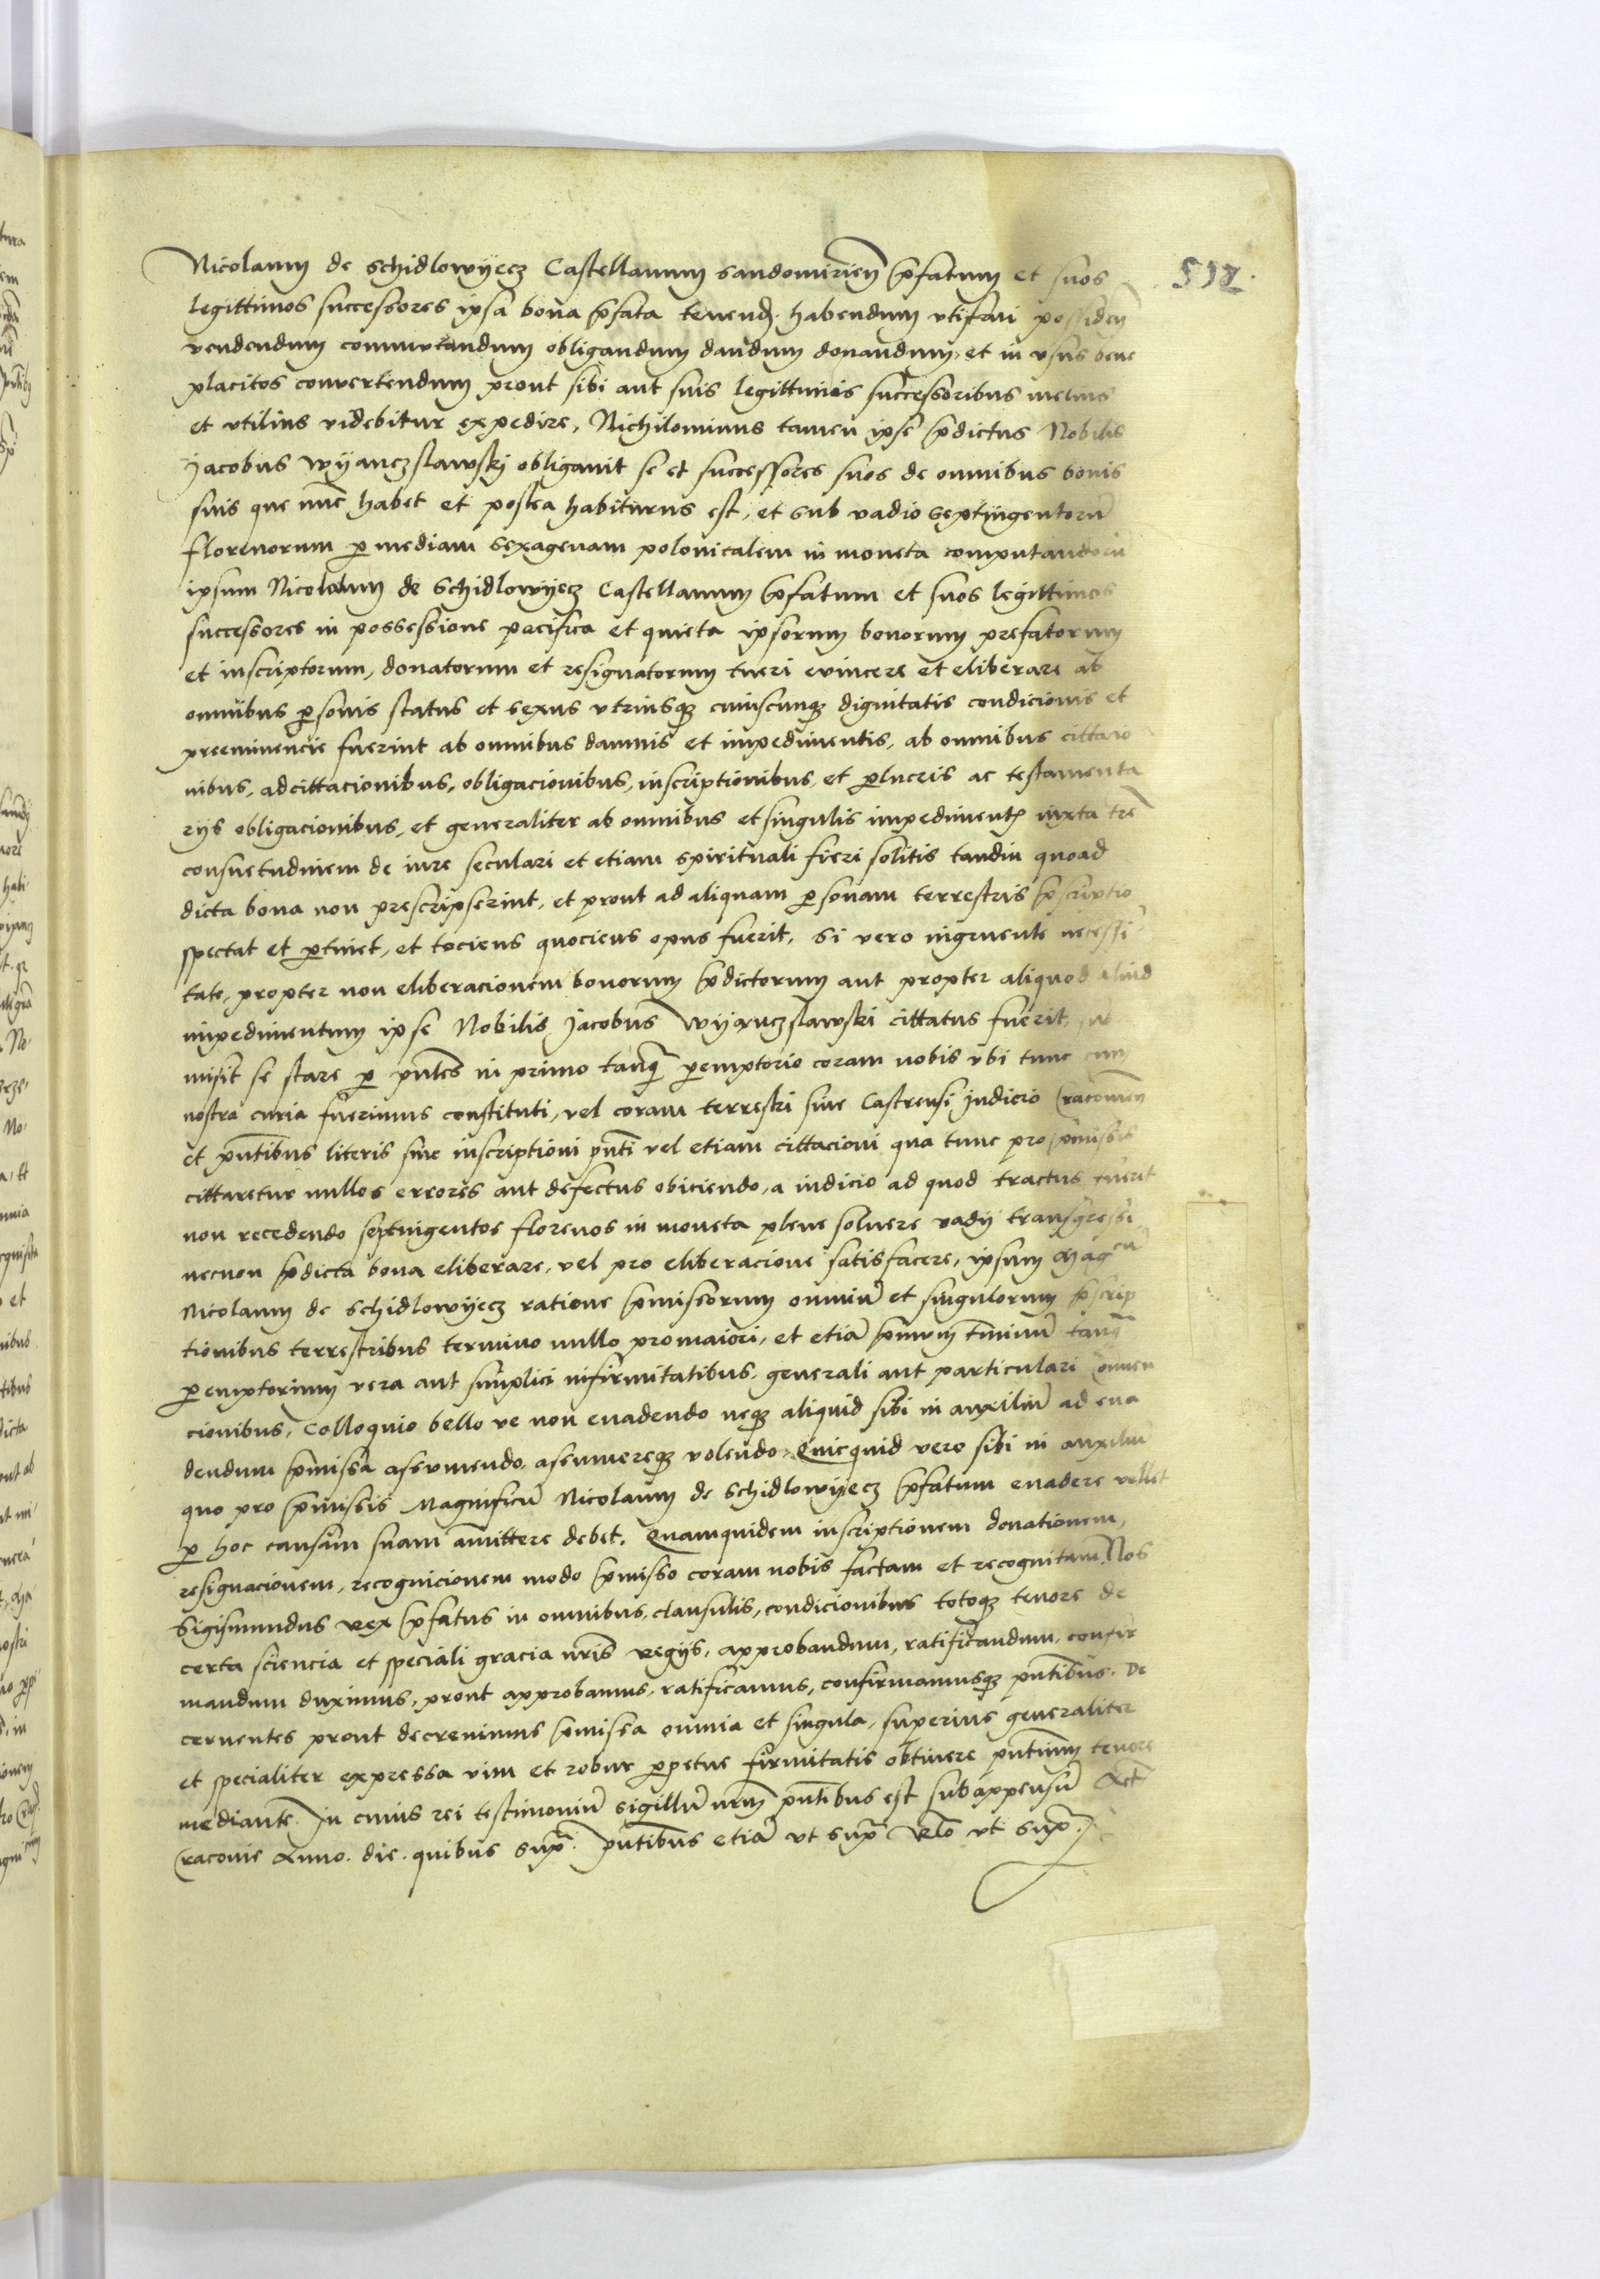 512.
Nicolaum de Schidlowyecz Castellanum Sandomirien̄ p̄fatum et suos
legittimos successores ipsa bona p̄fata tenend. habendum utifrui possiden̄
vendendum commutandum obligandum dandum donandum, et in usus bene
placitos convertendum prout sibi aut suis legittimis successoribus melius
et utilius videbitur expedire, Nichilominus tamen ipse p̄dictus Nobilis
Jacobus Wyanczslawski obligavit se et successores suos de omnibus bonis
suis que nūc habet et postea habiturus est, et sub vadio septingentorū
florenorum ꝑ mediam sexagenam polonicalem in moneta computandorū
ipsum Nicolaum de Schidlowyecz Castellanum p̄fatum et suos legittimos
successores in possessione pacifica et quieta ipsorum bonorum prefatorum
et inscriptorum, donatorum et resignatorum tueri evincere et eliberare ab
omnibus ꝑsonis status et sexus utriusqꝫ cuiuscunqꝫ dignitatis condicionis et
preeminencie fuerint ab omnibus damnis et impedimentis, ab omnibus cittacio
nibus, adcittacionibus, obligacionibus, inscriptionibus, et ꝑlucris ac testamenta
rijs obligacionibus, et generaliter ab omnibus et singulis impediment̄ iuxta trē
consuetudinem de iure seculari et etiam spirituali fieri solitis tandiu quoad
dicta bona non prescripserint, et prout ad aliquam ꝑsonam terrestris p̄scriptio
spectat et ꝑtinet, et tociens quociens opus fuerit. Si vero ingruente necessi
tate, propter non eliberacionem bonorum p̄dictorum aut propter aliquod aliud
impedimentum ipse Nobilis Jacobus Wyanczslawski cittatus fuerit, sub
misit se stare ꝑ pn̄tes in primo tanq̄ ꝑemptorio coram nobis ubi tunc cum
nostra curia fuerimus constituti, vel coram terrestri sive Castrensi Judicio Cracovien̄
et pn̄tibus literis sive inscriptioni pn̄ti vel etiam cittacioni qua tunc pro p̄missis
cittaretur nullos errores aut defectus obiciendo, a iudicio ad quod tractus fuerit
non recedendo septingentos florenos in moneta plene solvere vadij transgressi
necnon p̄dicta bona eliberare, vel pro eliberacione satisfacere, ipsum Mag^cū
Nicolaum de Schidlowyecz ratione p̄missorum omniū et singulorum p̄scrip
tionibus terrestribus termino nullo pro maiori, et etiā p̄mum tn̄inū tanq̄
ꝑemptorium vera aut simplici infirmitatibus, generali aut particulari conven
cionibus, Colloquio bello ve non evadendo neqꝫ aliquid sibi in auxiliū ad eva
dendum p̄missa assumendo, assumereqꝫ volendo, Quicquid vero sibi in auxiliū
quo pro p̄missis Magnificū Nicolaum de Schidlowyecz p̄fatum evadere vellet
ꝑ hoc causam suam amittere debet, Quamquidem inscriptionem donationem,
resignacionem, recognicionem modo p̄misso coram nobis factam et recognitam, Nos
Sigismundus Rex p̄fatus in omnibus, clausulis, condicionibus totoqꝫ tenore de
certa sciencia et speciali gracia nr̄is Regijs, approbandum, ratificandum, confir
mandum duximus, prout approbamus, ratificamus, confirmamusqꝫ pn̄tibus. De
cernentes prout decrevimus p̄missa omnia et singula, superius generaliter
et specialiter expressa vim et robur ꝑpetue firmitatis obtinere pn̄tium tenore
mediante. In cuius rei testimoniū sigillū nr̄m pn̄tibus est subappensū Act̄
Cracovie Anno. die. quibus supra. Pn̄tibus etiā ut supra Rlō ut supra.